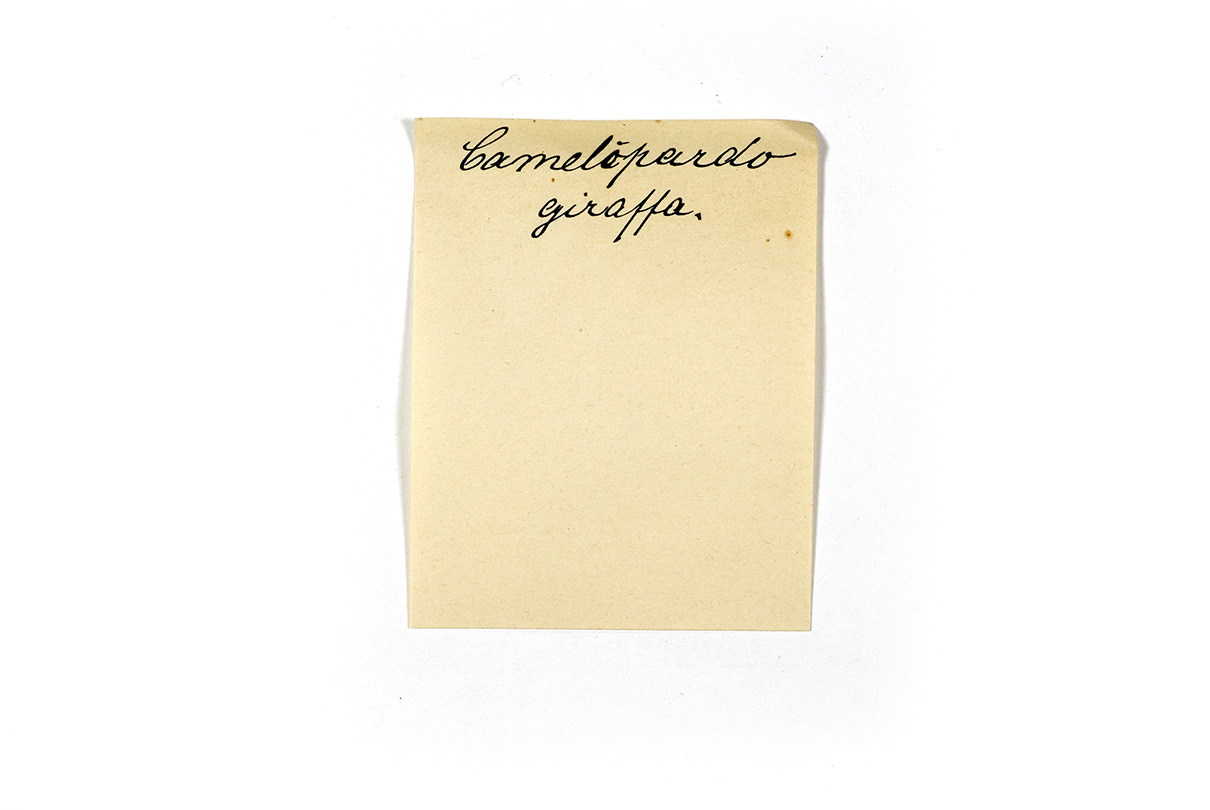 Camelopardo
giraffa.